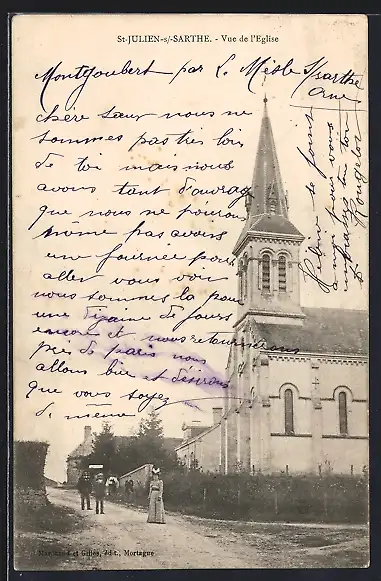 St-JULIEN-s/-SARTHE. - Vue de l'Eglise
Montgoubert par L. Mesle s/sarthe
orne
chère sœur nous ne
sommes pas très loin
de toi mais nous
avons tant d'ouvrage
que nous ne pouvons
même pas avoir
une journée pour
aller vous voir
nous sommes la pour
une dizaine de jours
encores et nous retournerons
près de paris nous
allons bien et désirons
que vous soyez
de même
pour vous
Marchand et Gilles, édit., Mortagne